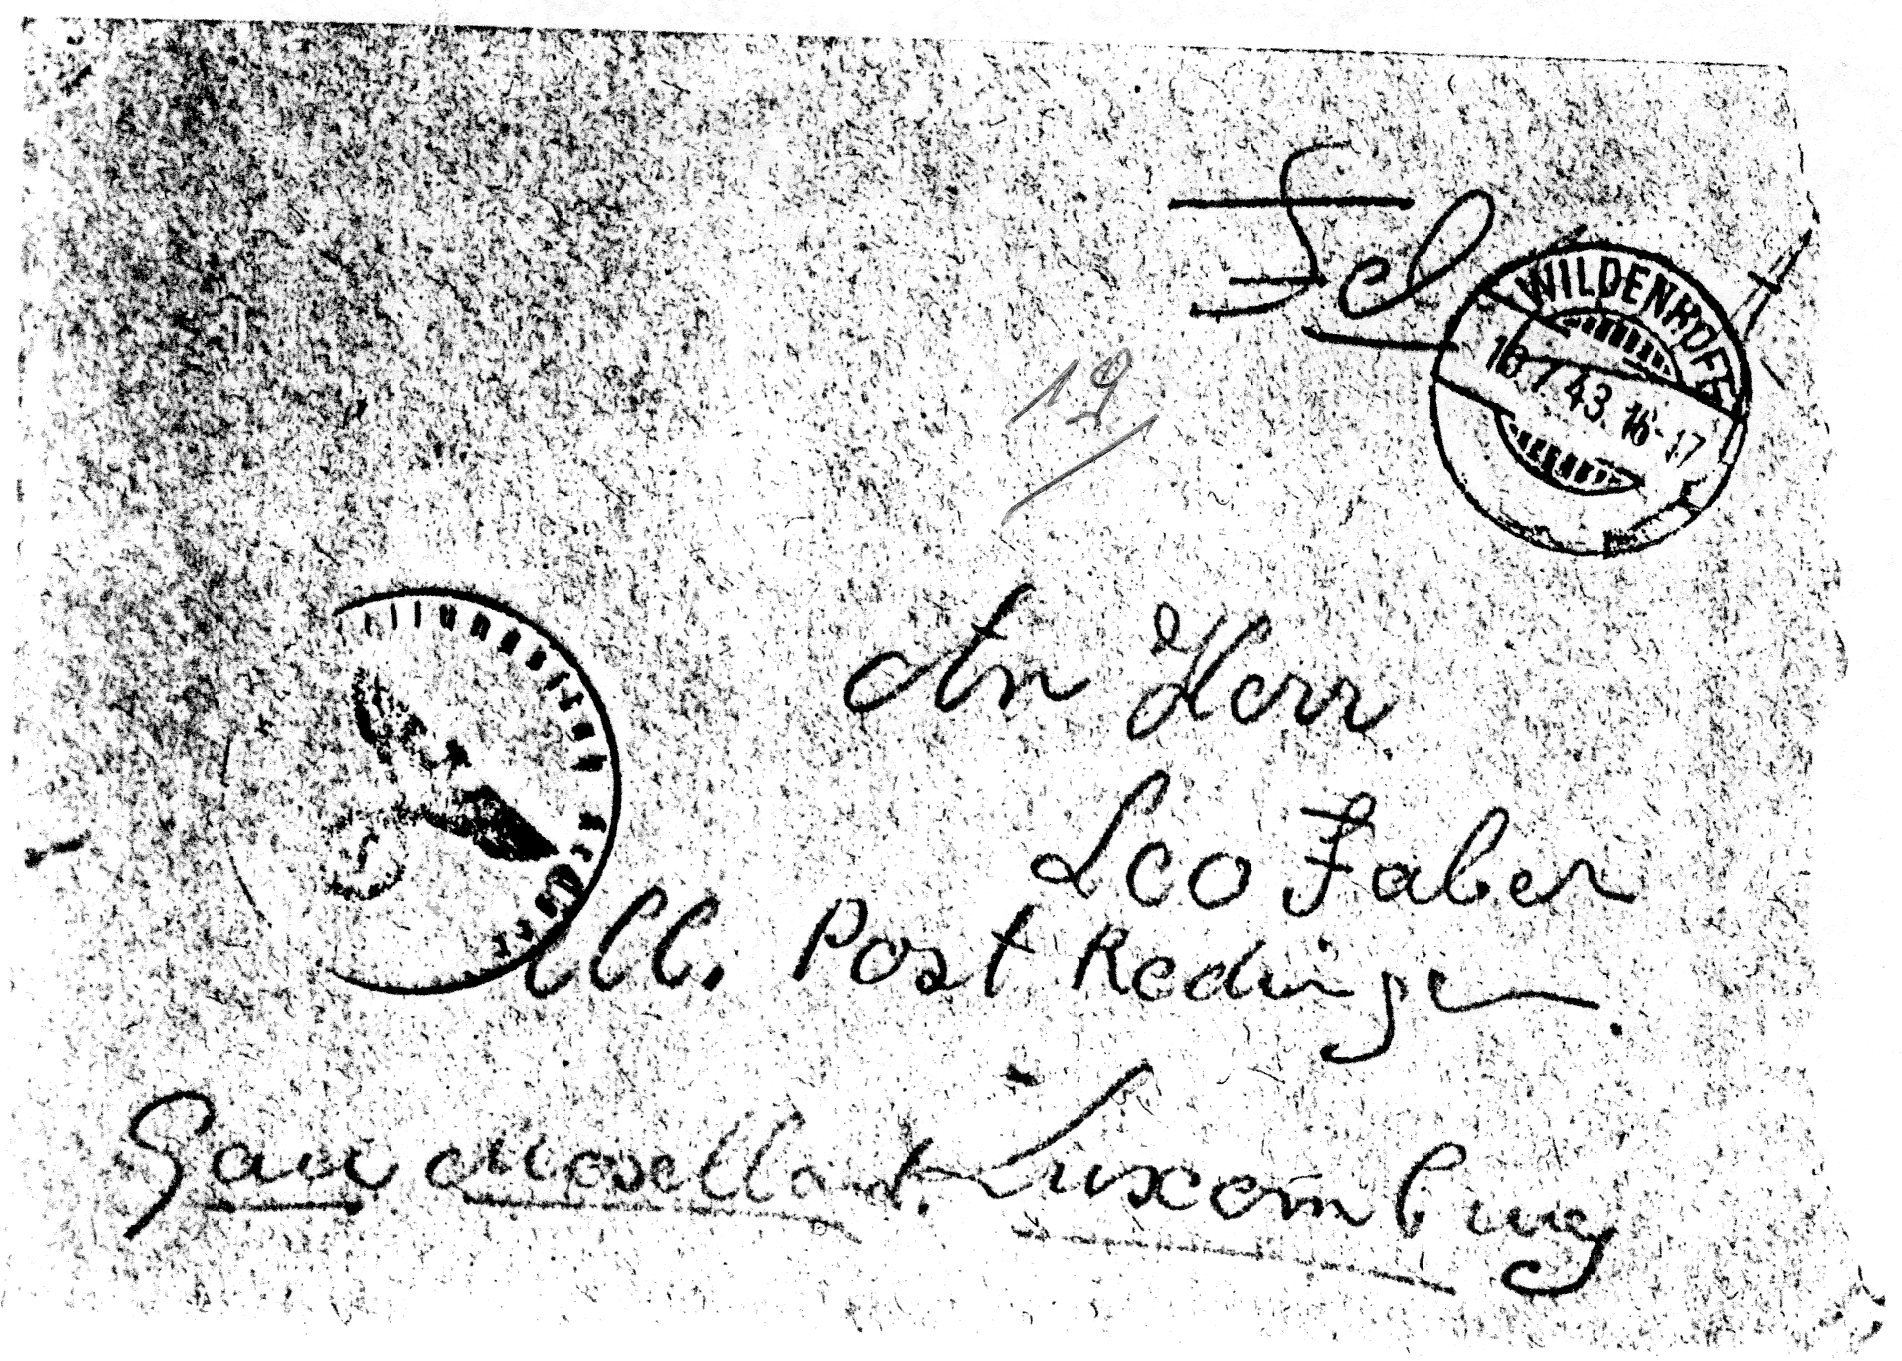 WILDENHOFF
43. 16-17
19.
An Herr
Leo Faber
Ell. Post Redingen.
Gau Moselland. Luxemburg